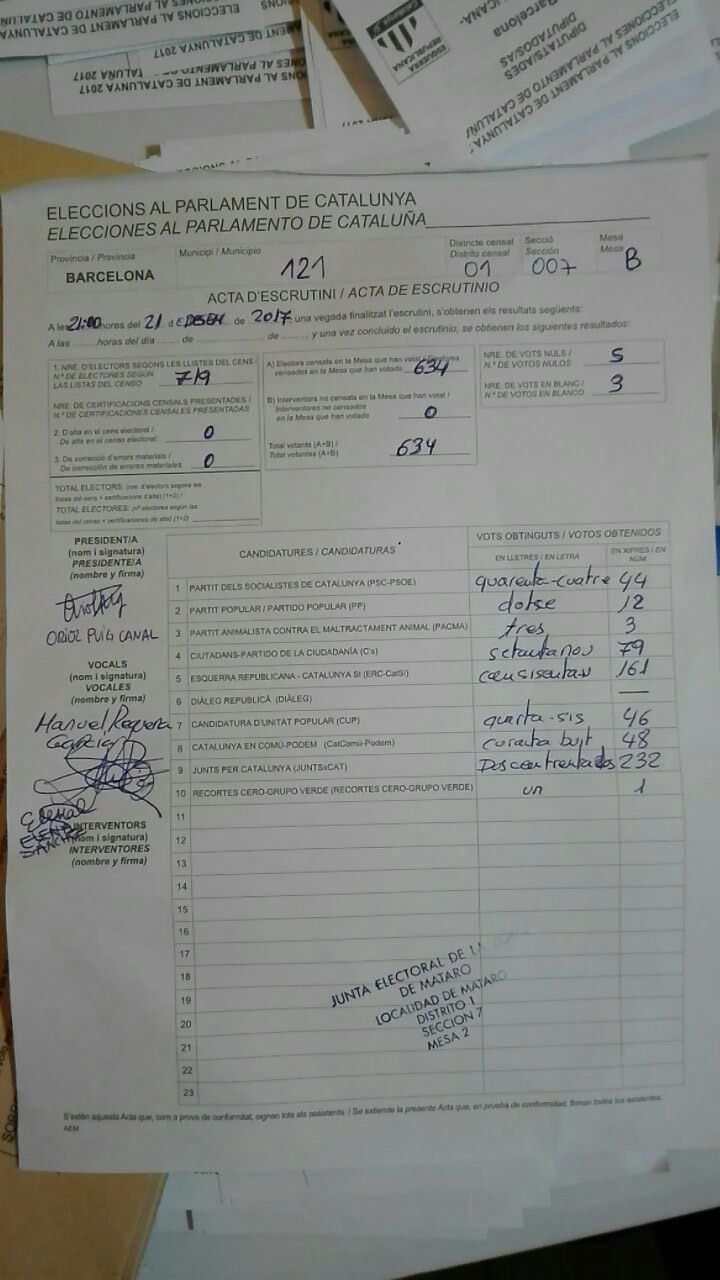 ELECCIONS AL PARLAMENT DE CATALUNYA
ELECCIONS AL PARLAMENT DE CATALUNYA 2017
ESQUERRA
REPUBLICANA
Barcelona
DIPUTATS/ADES
DIPUTADOS/AS
ELECCIONS AL PARLAMENT DE CATALUNYA
ELECCIONES AL PARLAMENTO DE CATALUÑA
ELECCIONS AL PARLAMENT DE CATALUNYA
ELECCIONES AL PARLAMENTO DE CATALUÑA
Província / Provincia
BARCELONA
Municipi / Municipio
121
Districte censal
Distrito censal
01
Secció
Sección
007
Mesa
Mesa
B
ACTA D'ESCRUTINI / ACTA DE ESCRUTINIO
A les 21:00 hores del 21 d de 2017, una vegada finalitzat l'escrutini, s'obtenen els resultats següents:
A las ...... horas del día ...... de ...... de ......, y una vez concluido el escrutinio, se obtienen los siguientes resultados:
1. NRE. D'ELECTORS SEGONS LES LLISTES DEL CENS /
N.º DE ELECTORES SEGÚN
LAS LISTAS DEL CENSO 719
NRE. DE CERTIFICACIONS CENSALS PRESENTADES /
N.º DE CERTIFICACIONES CENSALES PRESENTADAS
2. D'alta en el cens electoral /
De alta en el censo electoral: 0
3. De correcció d'errors materials /
De corrección de errores materiales 0
TOTAL ELECTORS: (nre. d'electors segons les
llistes del cens + certificacions d'alta) (1+2) /
TOTAL ELECTORES: (nº electores según las
listas del censo + certificaciones de alta) (1+2)
A) Electors censats en la Mesa que han votat / Electores
censados en la Mesa que han votado 634
B) Interventors no censats en la Mesa que han votat /
Interventores no censados
en la Mesa que han votado 0
Total votants (A+B) /
Total votantes (A+B) 634
NRE. DE VOTS NULS /
N.º DE VOTOS NULOS 5
NRE. DE VOTS EN BLANC /
N.º DE VOTOS EN BLANCO 3
PRESIDENT/A
(nom i signatura)
PRESIDENTE/A
(nombre y firma)
ORIOL PUIG CANAL
VOCALS
(nom i signatura)
VOCALES
(nombre y firma)
Manuel
Garcia
ELENA
SÁNCHEZ
INTERVENTORS
(nom i signatura)
INTERVENTORES
(nombre y firma)
CANDIDATURES / CANDIDATURAS
VOTS OBTINGUTS / VOTOS OBTENIDOS
EN LLETRES / EN LETRA
EN XIFRES / EN NÚM.
1 PARTIT DELS SOCIALISTES DE CATALUNYA (PSC-PSOE) quarenta-cuatre 44
2 PARTIT POPULAR / PARTIDO POPULAR (PP) dotse 12
3 PARTIT ANIMALISTA CONTRA EL MALTRACTAMENT ANIMAL (PACMA) tres 3
4 CIUTADANS-PARTIDO DE LA CIUDADANÍA (C's) setantanou 79
5 ESQUERRA REPUBLICANA - CATALUNYA SI (ERC-CatSí) 161
6 DIÀLEG REPUBLICÀ (DIÀLEG) —
7 CANDIDATURA D'UNITAT POPULAR (CUP) quarta-sis 46
8 CATALUNYA EN COMÚ-PODEM (CatComú-Podem) 48
9 JUNTS PER CATALUNYA (JUNTSxCAT) 232
10 RECORTES CERO-GRUPO VERDE (RECORTES CERO-GRUPO VERDE) un 1
11
12
13
14
15
16
17
18
19
20
21
22
23
JUNTA ELECTORAL DE LA ZONA
DE MATARO
LOCALIDAD DE MATARO
DISTRITO 1
SECCION 7
MESA 2
S'estén aquesta Acta que, com a prova de conformitat, signen tots els assistents. / Se extiende la presente Acta que, en prueba de conformidad, firman todos los asistentes.
AEM